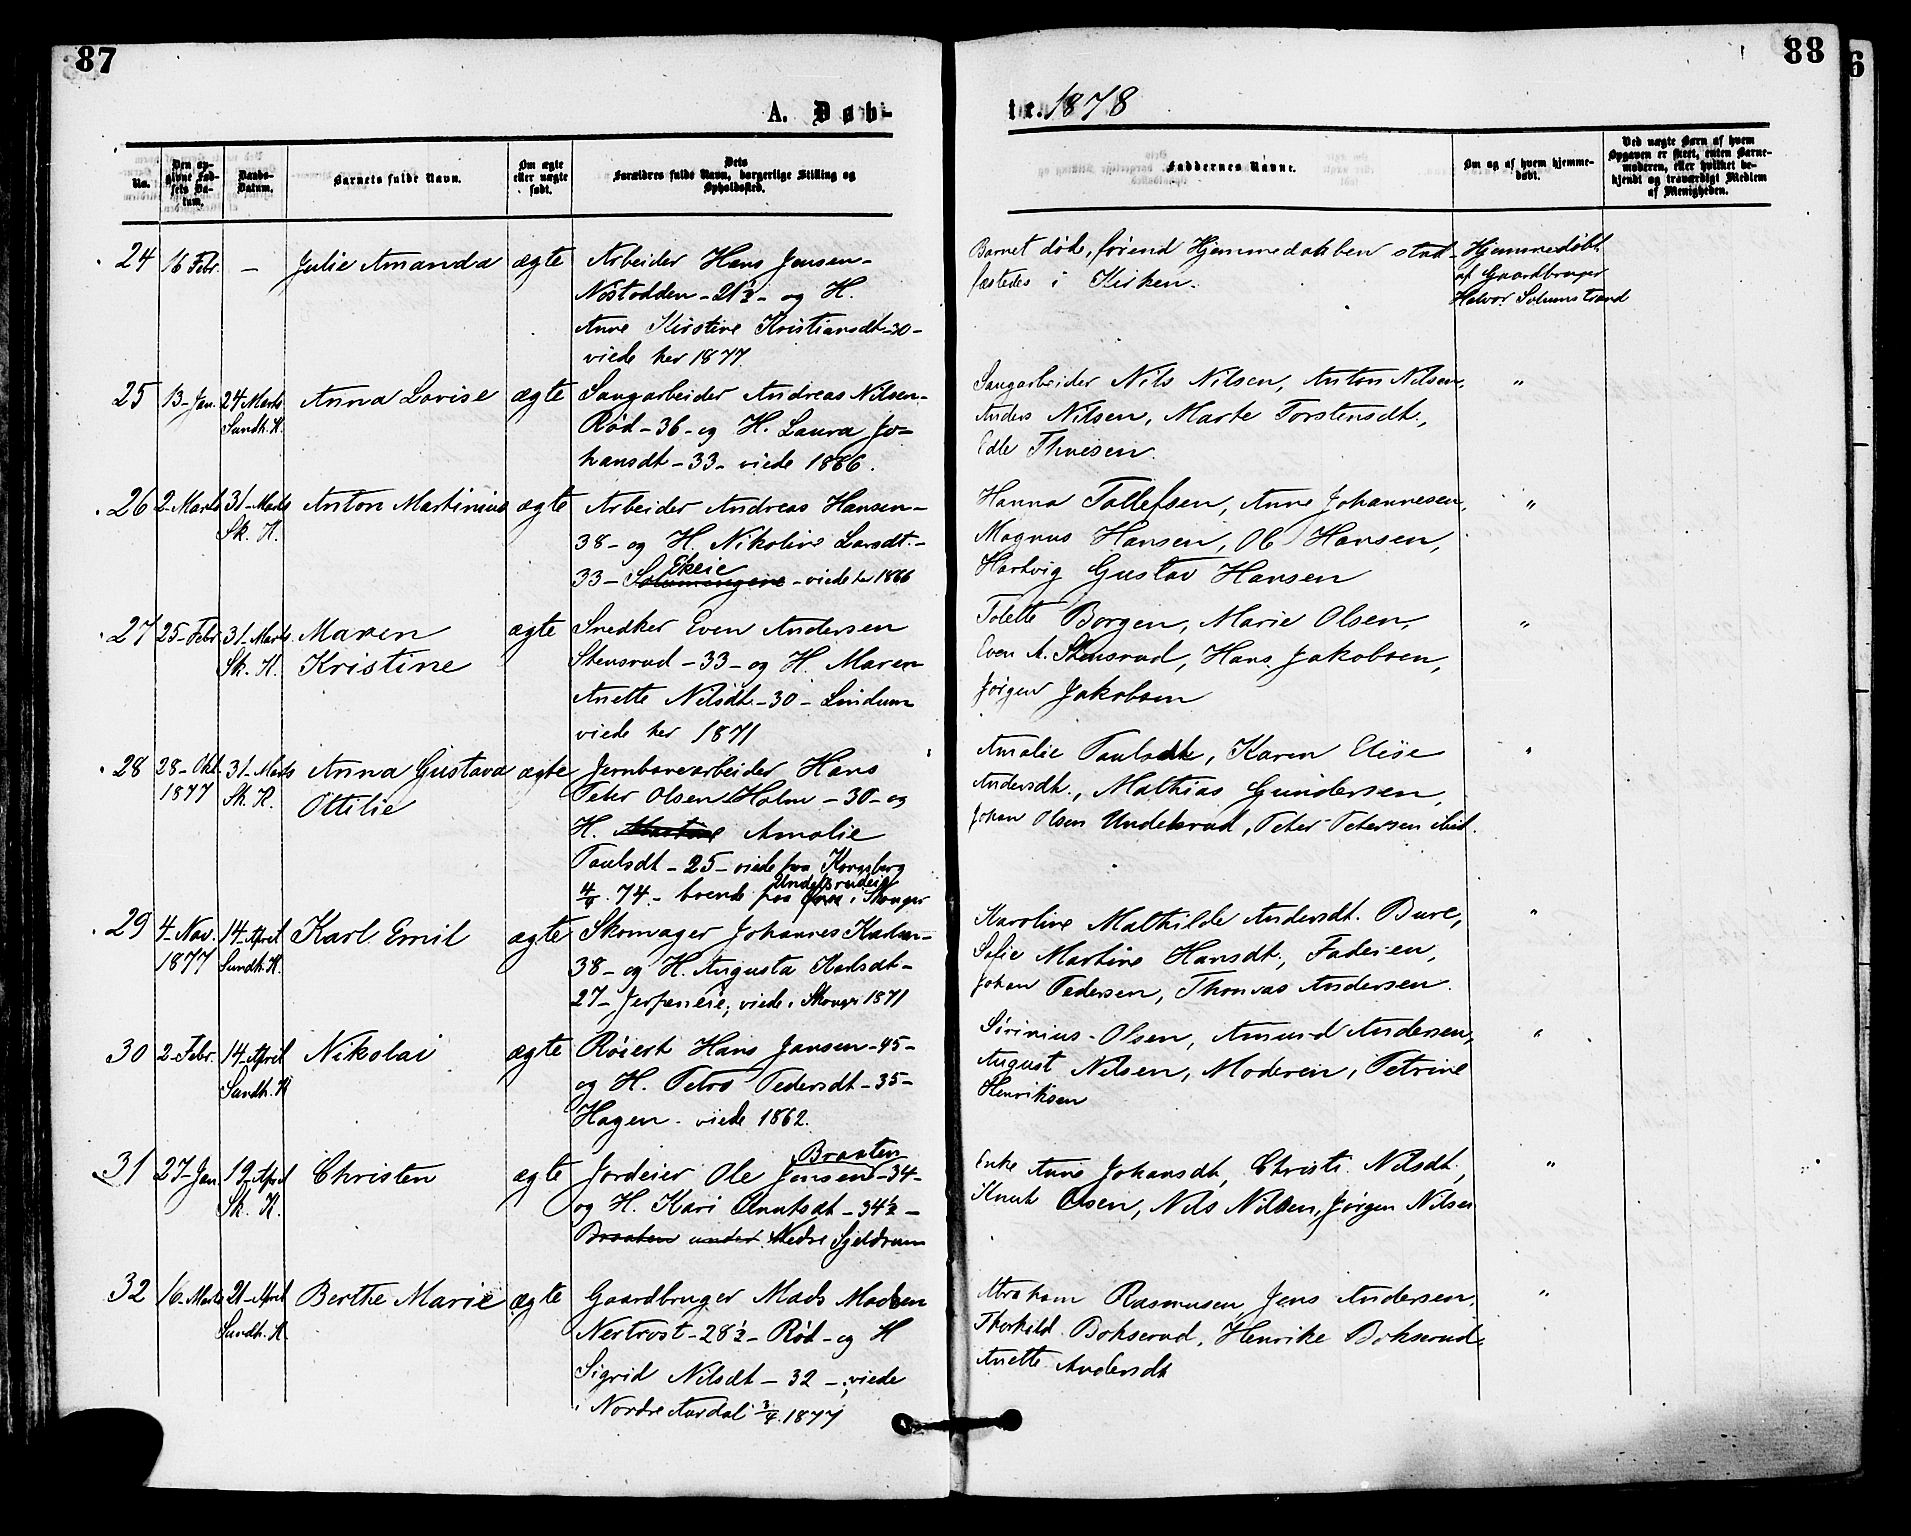 87
88
6
A. Døb-
te. 1878
No.
Den op-
givne Fød-
sels Da-
tum.
Daabs-
Datum.
Barnets fulde Navn.
Om ægte
eller uægte
født.
Dets
Forældres fulde Navn, borgerlige Stilling og
Opholdssted.
Faddernes Navne.
Om og af hvem hjemme-
døbt.
Ved uægte Børn af hvem
Opgaven er skeet, enten Barne-
moderen, eller hvilket be-
kjendt og troværdigt Medlem
af Menigheden.
24 16 Febr. — Julie Amanda ægte Arbeider Hans Jensen-
Nostodden - 21½ - og H.
Anne Kirstine Kristiansdt - 30 -
viede her 1877.
Barnet døde, førend Hjemmedaaben stad-
fæstedes i Kirken.
Hjemmedøbt
af Gaardbruger
Halvor Solumstrand
25 13-Jan. 24 Marts Anna Lovise ægte Saugarbeider Andreas Nilsen-
Sundh. K.
Rød - 36 - og H. Laura Jo-
hansdt - 33 - viede 1866.
Saugarbeider Nils Nilsen, Anton Nilsen, "
Anders Nilsen, Marte Torstensdt.,
Edle Thuesen.
26 2-Marts 31-Marts Anton Martinius ægte Arbeider Andreas Hansen-
Sk. K.
38 - og H. Nikoline Larsdt. -
Ekeie
33 - - viede her 1866
Hanna Tollefsen, Anne Johannesen, "
Magnus Hansen, Ole Hansen,
Hartvig Gustav Hansen
27 25-Febr. 31-Marts Maren ægte Snedker Even Andersen
Sk. K. Kristine
Stensrud - 33 - og H. Maren
Anette Nilsdt. - 30 - Lindum
viede her 1871
Tolette Borgen, Marie Olsen, "
Even A. Stensrud, Hans Jakobsen,
Jørgen Jakobsen
28 28-Okt. 31-Marts Anna Gustava ægte Jernbanearbeider Hans
1877 Sk. K. Ottilie
Peter Olsen Holm - 30 - og
H. Amalie
Paulsdt - 25 - viede paa Kongsberg
74 - boende paa i Skouger
Amalie Paulsdt, Karen Elise "
Andersdt., Mathias Gundersen,
Johan Olsen Undelsrud, Peter Petersen ibid.
29 4-Nov. 14-April Karl Emil ægte Skomager Johannes Karlsen-
1877 Sundh. K.
38 - og H. Augusta Karlsdt -
27 - Jerpeneie, viede i Skouger 1871
Karoline Mathilde Andersdt. Bure, "
Sofie Martine Hansdt., Faderen,
Johan Pedersen, Thomas Andersen.
30 2-Febr. 14-April Nikolai ægte Røiert Hans Jansen - 45 -
Sundh. K
og H. Petra Pedersdt - 35 -
Hagen - viede 1862.
Sirinius Olsen, Amund Andersen, "
August Nilsen, Moderen, Petrine
Henriksen
31 27-Jan. 19-April Christen ægte Jordeier Ole Jensen Braaten - 34 -
Sk. K.
og H. Kari Knutsdt - 34½ -
Braaten under Nedre Gjeldrum
Enke Anne Johansdt, Christi. Nilsdt., "
Knut Olsen, Nils Nilsen, Jørgen Nilsen
32 16-Marts 21-April Berthe Marie ægte Gaardbruger Mads Madsen
Sundh. K.
Nertrost - 28½ - Rød - og H
Sigrid Nilsdt - 32 - , viede
i Nordre Aurdal 1877
Abraham Rasmusen, Jens Andersen, "
Thorkild Bokserud, Henrike Bokserud
Anette Andersdt